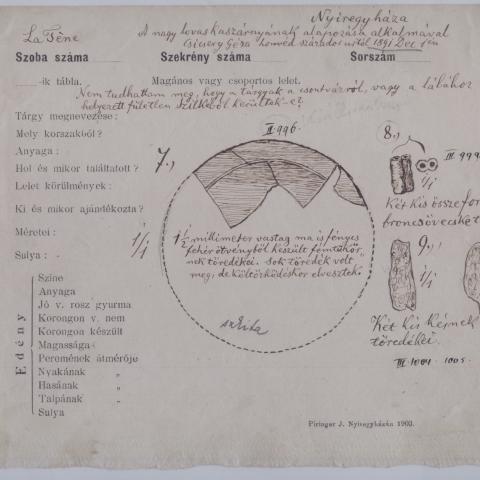 Nyiregyháza
La Tène
A nagy lovas kaszárnyának alapozása alkalmával
Csicsery Géza honvéd százados urtól 1891 Dec 1én
Szoba száma
Szekrény száma
Sorszám
-ik tábla.
Magános vagy csoportos lelet.
Nem tudhattam meg, hogy a tárgyak a csontvázról, vagy a lábához
helyezett fületlen szilkéből kerültek-e?
Tárgy megnevezése:
Mely korszakból?
Anyaga:
Hol és mikor találtatott?
Lelet körülmények:
Ki és mikor ajándékozta?
Méretei: 1/1
Sulya:
II. 996.
7.,
1 1/2 millimeter vastag ma is fényes
fehér ötvényből készült fémtükör-
nek töredékei. Sok töredék volt
meg, de költözködéskor elvesztek.
8.,
III 999
1/1
Két kis összefor
broncsövecske
9.,
1/1
Két kis késnek
töredékei.
III. 1004. 1005.
Edény
Szine
Anyaga
Jó v. rosz gyurma
Korongon v. nem
Korongon készült
Magassága
Peremének átmérője
Nyakának "
Hasának "
Talpának "
Sulya
Piringer J. Nyiregyházán 1903.